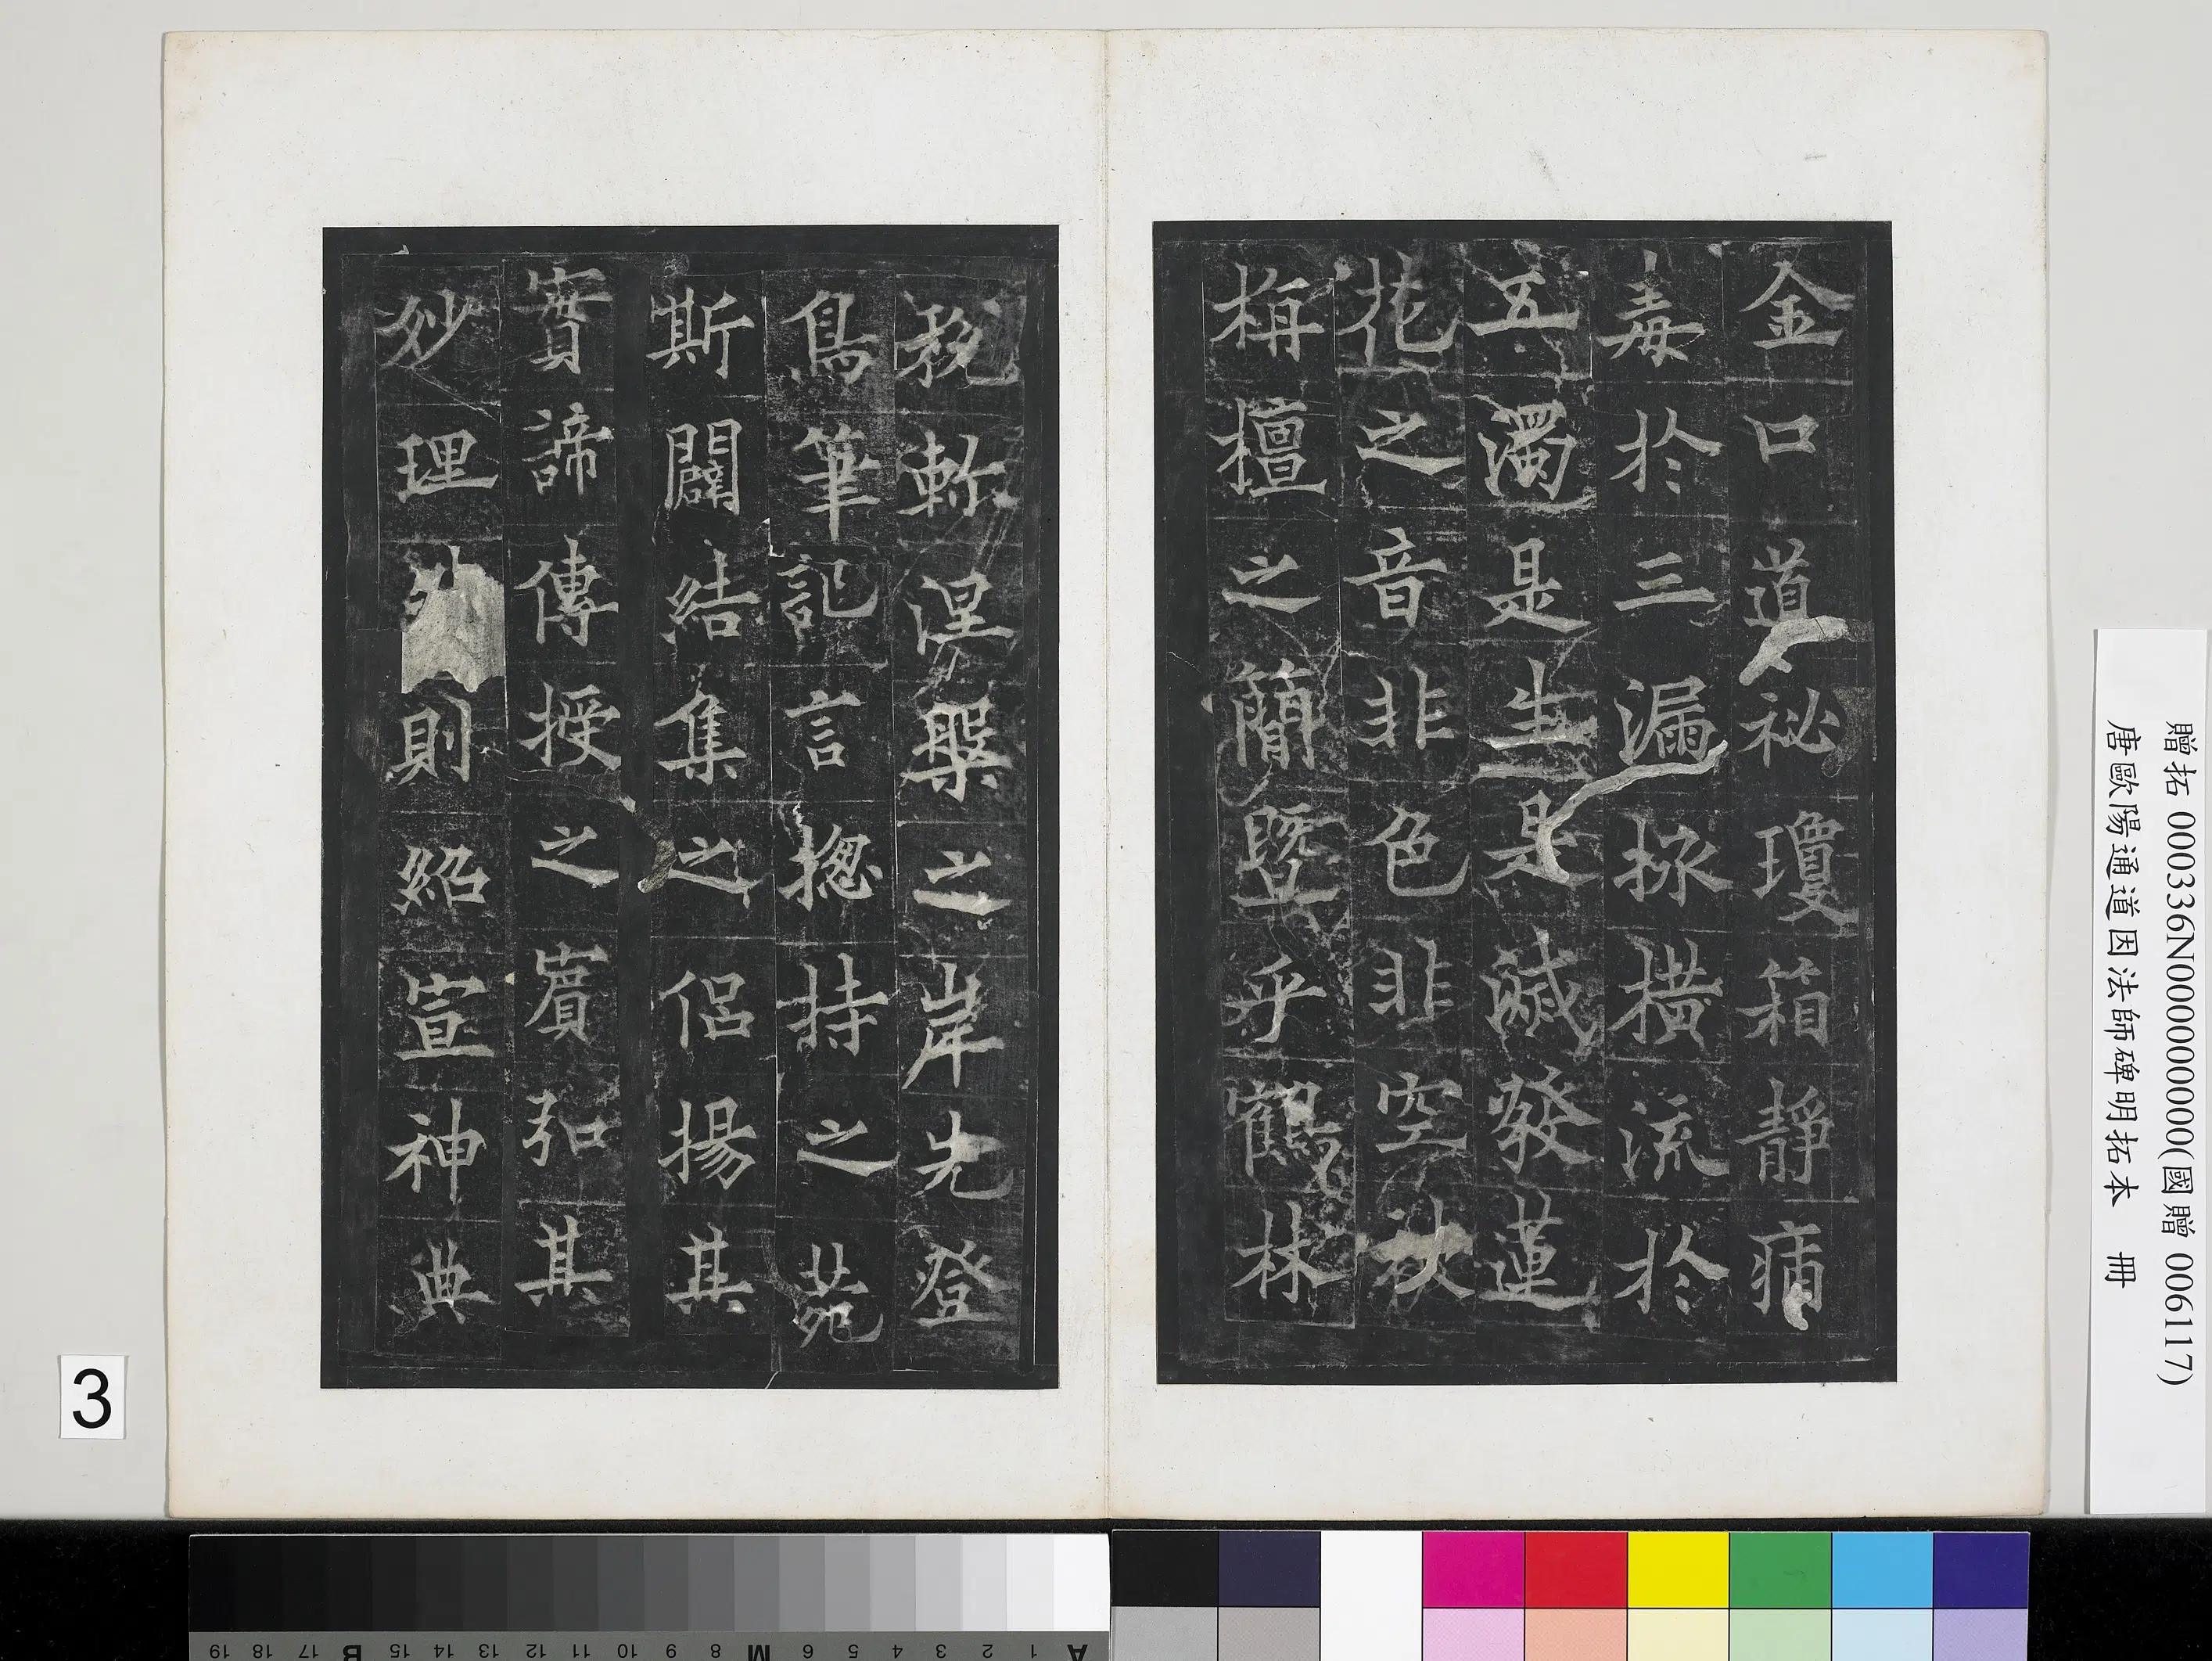 金口道祕瓊箱靜痟
毒於三漏拯橫流於
五濁是生是滅發蓮
花之音非色非空袟
栴檀之簡暨乎鶴林
稅軫涅槃之岸先登
鳥筆記言揔持之苑
斯闢結集之侶揚其
實諦傳授之賓弘其
妙理則紹宣神典
贈拓 000336N000000000(國贈 006117)
唐歐陽通道因法師碑明拓本 冊
3
A 1 2 3 4 5 6 M 8 9 10 11 12 13 14 15 B 17 18 19